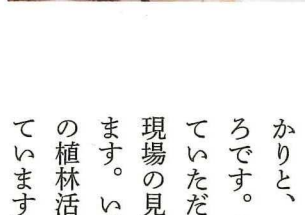 かりと、
ろです。
ていただ
現場の見
ます。い
の植林活
ています